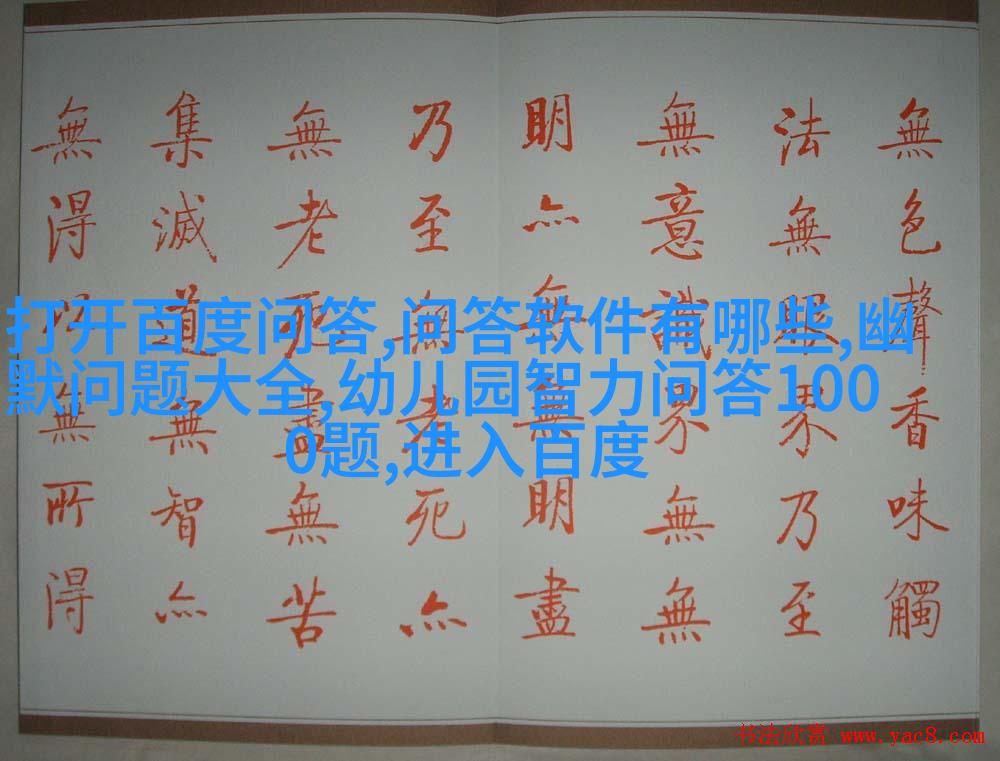 無色聲香味觸
法無眼界乃至
無意識界無無
明亦無無明盡
乃至無老死亦
無老死盡無苦
集滅道無智亦
無得以無所得
打开百度问答,问答软件有哪些,幽
默问题大全,幼儿园智力问答100
0题,进入百度
书法欣赏 www.yac8.com